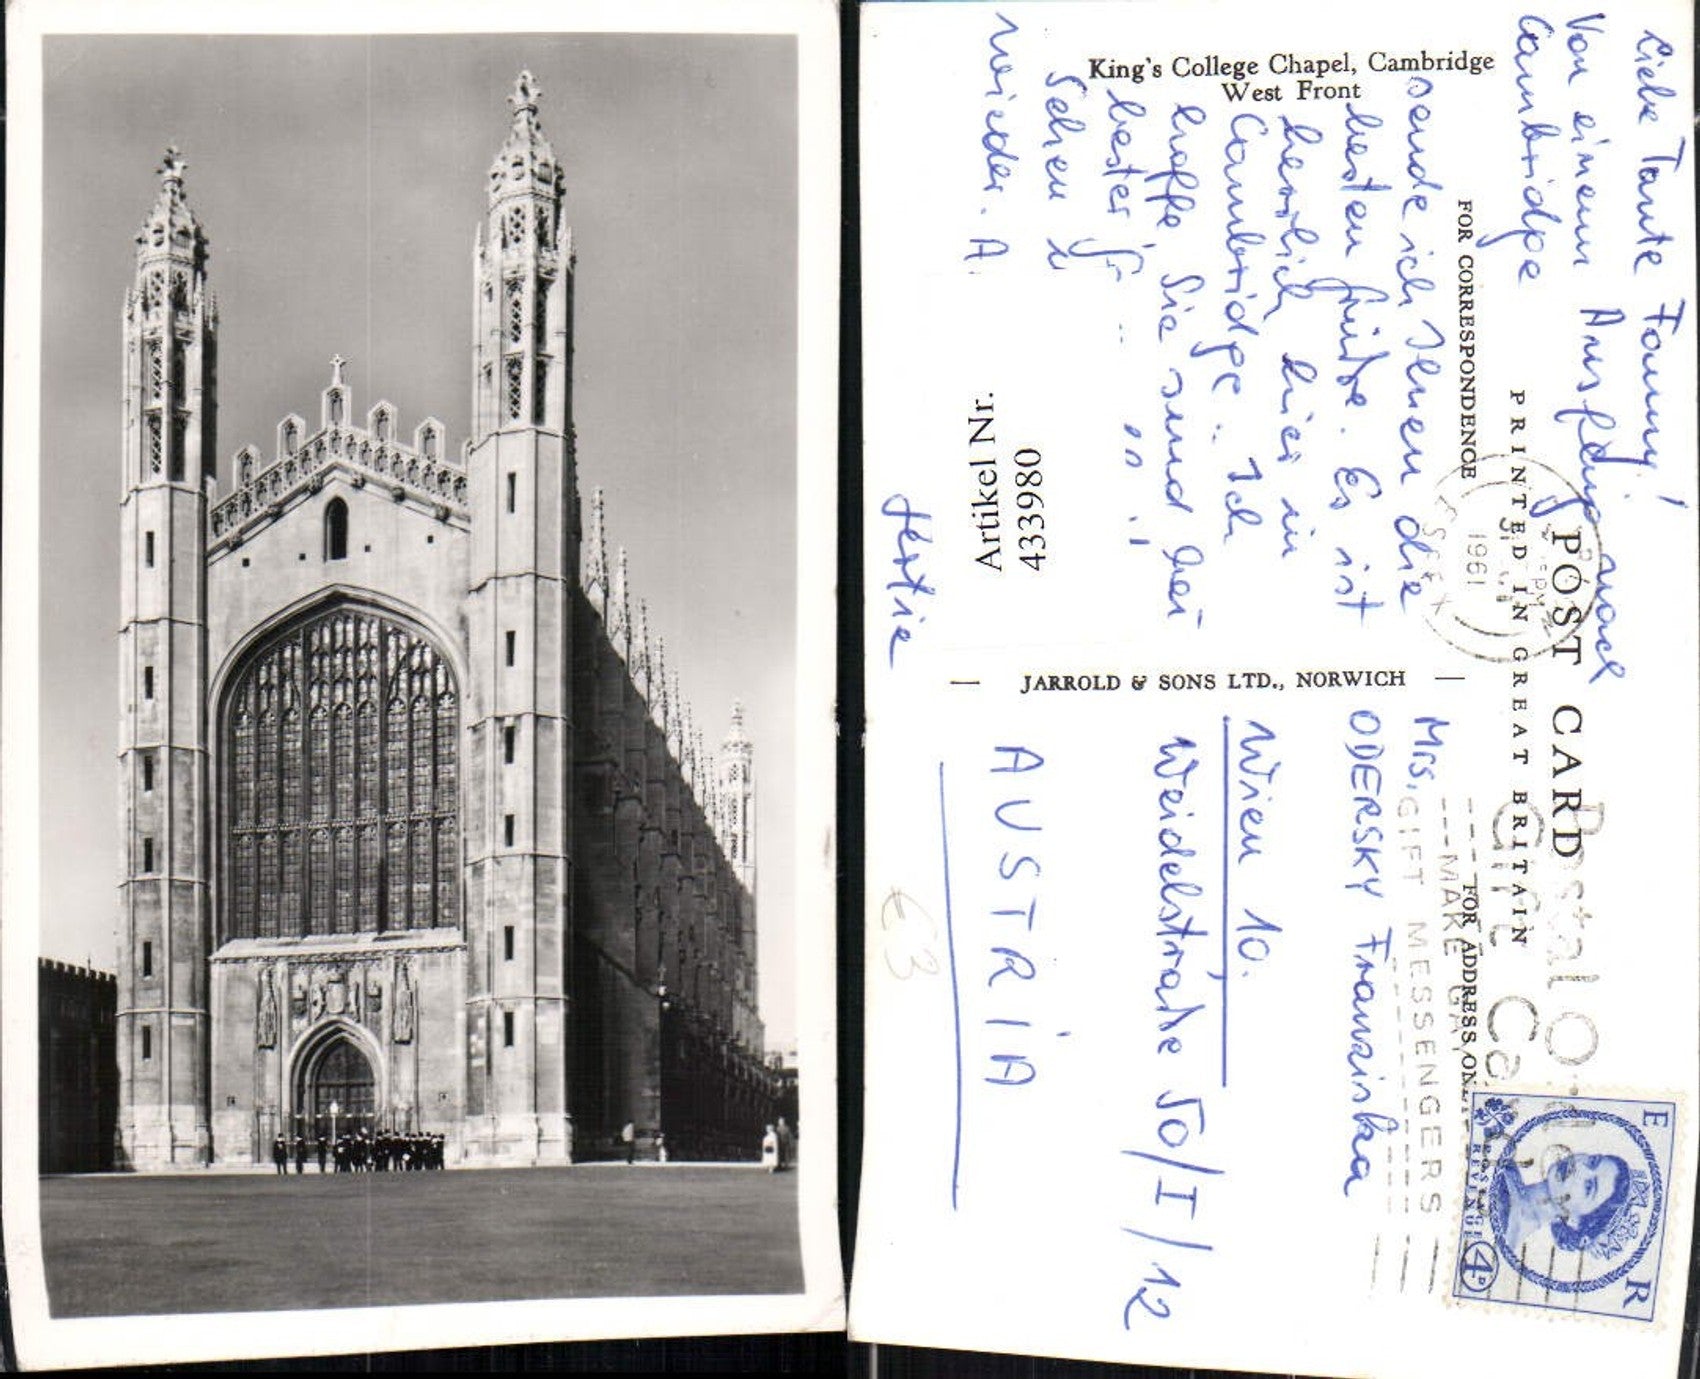 King's College Chapel, Cambridge
West Front
FOR CORRESPONDENCE
POST CARD
PRINTED IN GREAT BRITAIN
FOR ADDRESS ONLY
JARROLD & SONS LTD., NORWICH
Liebe Tante Fanny!
Von einem Ausflug nach
Cambridge
sende ich Ihnen die
besten Grüße. Es ist
herrlich hier in
Cambridge. Ich
hoffe Sie sind bei
bester
Sehen
wieder. A.
Hertie
Mrs.
ODERSKY Franziska
Wien 10.
Weidelstraße 50/I/12
AUSTRIA
Artikel Nr.
433980
€3
1961
ESSEX
MAKE
GIFT MESSENGERS
E R
POSTAGE
REVENUE
4D